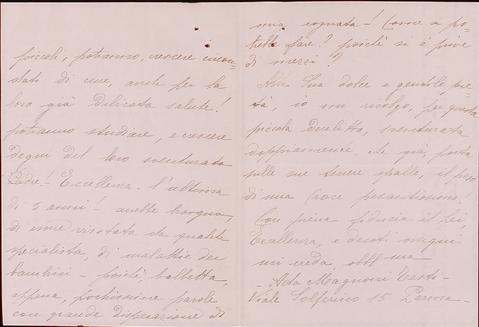 piccoli, potranno, crescere circon-
dati di cure, anche per la
loro già delicata salute!
potranno studiare, e crescere
degni del loro sventurato
Padre! Eccellenza, l'ultima
di 3 anni! avrebbe bisogno,
di essere visitata da qualche
specialista, di malattie dei
bambini - poichè, balbetta,
appena, pochissime parole
con grande disperazione di
mia cognata! Come si po-
trebbe fare? poichè si è prive
di mezzi?
Alla Sua dolce e gentile pie-
tà, io mi rivolgo, per questa
piccola Derelitta, sventurata
doppiamente che già, porta
sulle sue tenere spalle, il peso
di una Croce pesantissima!
Con piena fiducia in Lei,
Eccellenza, e devoti ossequi
mi creda, obbl.ma
Ada Magnani
Viale Solferino 15 Parma -